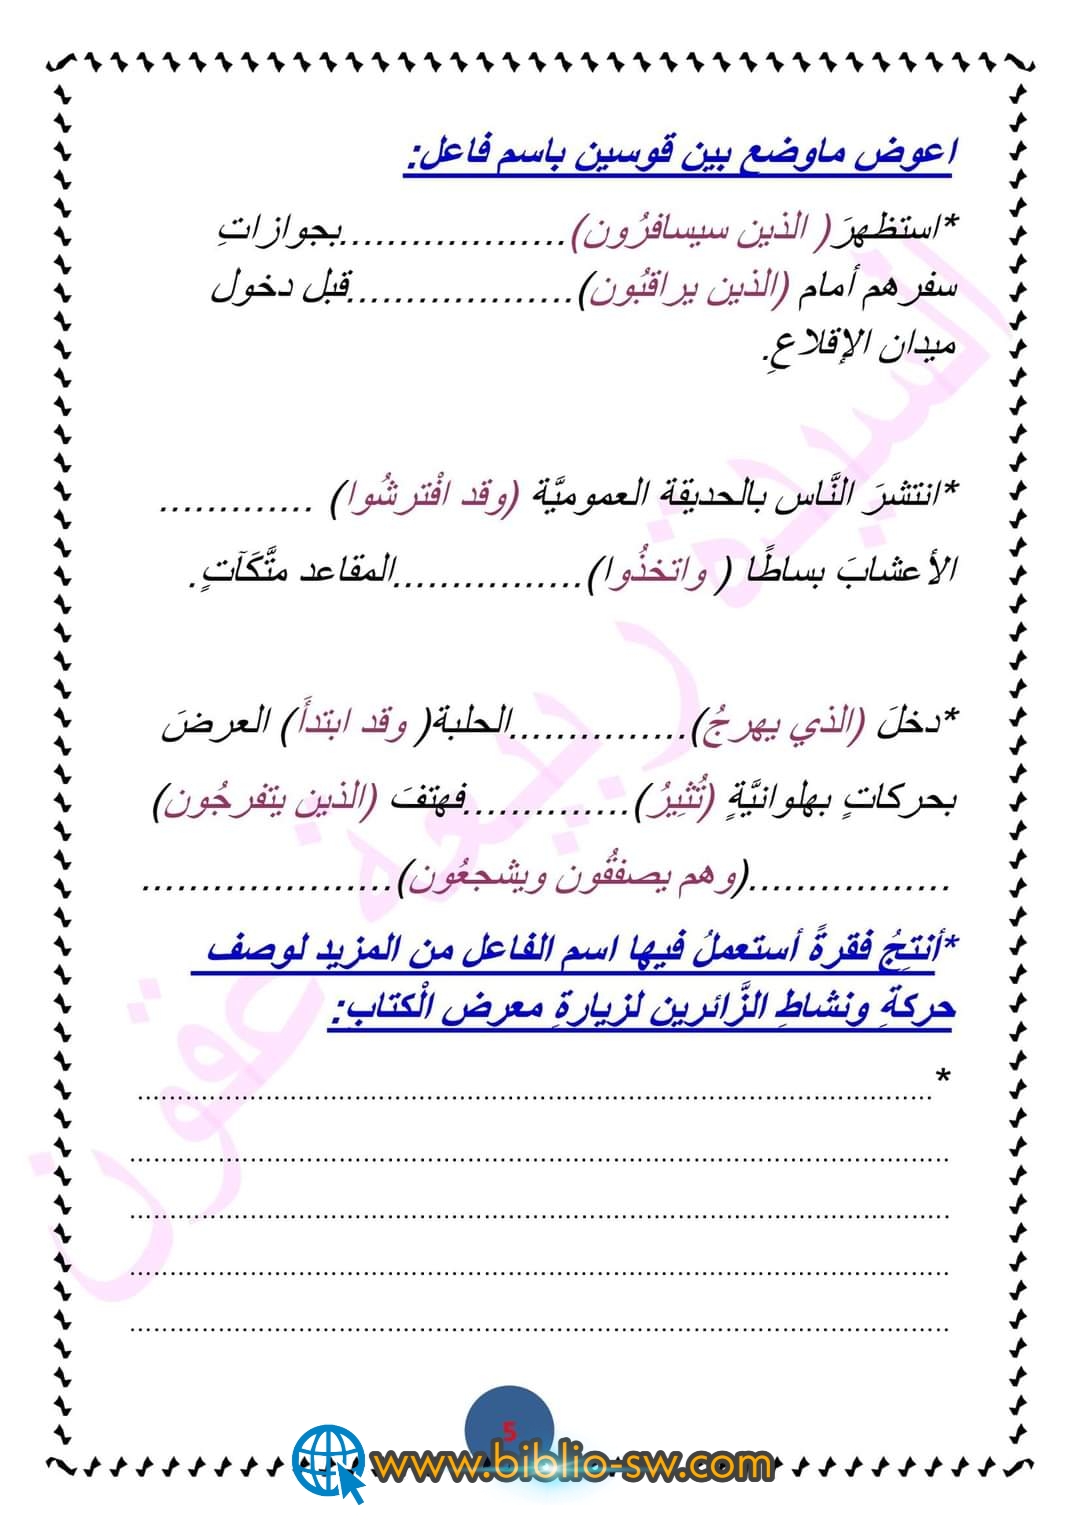 اعوض ماوضع بين قوسين باسم فاعل:
*استظهرَ( الذين سيسافرُون)...................بجوازاتِ
سفرهم أمام (الذين يراقبُون)...................قبل دخول
ميدان الإقلاعِ.
*انتشرَ النَّاس بالحديقة العموميَّة (وقد افْترشُوا) .............
الأعشابَ بساطًا ( واتخذُوا)................المقاعد متَّكَآتٍ.
*دخلَ (الذي يهرجُ)...............الحلبة( وقد ابتدأَ) العرضَ
بحركاتٍ بهلوانيَّةٍ (تُثِيرُ)..............فهتفَ (الذين يتفرجُون)
.................(وهم يصفقُون ويشجعُون).....................
*أنتِجُ فقرةً أستعملُ فيها اسم الفاعل من المزيد لوصف
حركةِ ونشاطِ الزَّائرين لزيارةِ معرض الْكتابِ:
*....................................................................................................
.......................................................................................................
.......................................................................................................
.......................................................................................................
.......................................................................................................
السيدة ربيعة عقون
5
www.biblio-sw.com